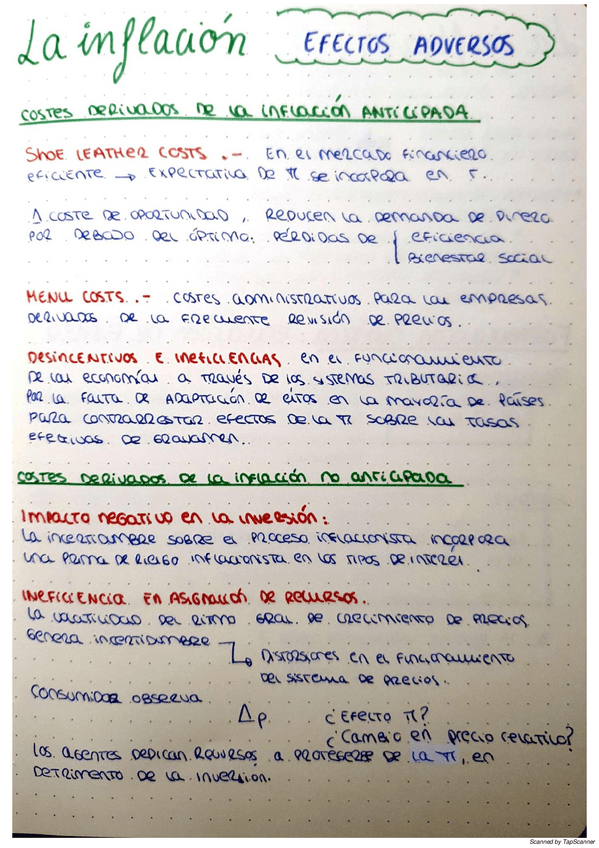 La inflación EFECTOS ADVERSOS
COSTES DERIVADOS DE LA INFLACIÓN ANTICIPADA
SHOE LEATHER COSTS .- En el mercado financiero
eficiente → EXPECTATIVA DE π se incorpora en r.
Δ COSTE DE OPORTUNIDAD, REDUCEN LA DEMANDA DE DINERO
POR DEBAJO DEL ÓPTIMO: PÉRDIDAS DE { EFICIENCIA
BIENESTAR SOCIAL
MENU COSTS .- COSTES ADMINISTRATIVOS PARA LAS EMPRESAS
DERIVADOS DE LA FRECUENTE REVISIÓN DE PRECIOS.
DESINCENTIVOS E INEFICIENCIAS en el FUNCIONAMIENTO
DE LAS ECONOMÍAS A TRAVÉS DE LOS SISTEMAS TRIBUTARIOS,
POR LA FALTA DE ADAPTACIÓN DE ÉSTOS EN LA MAYORÍA DE PAÍSES
PARA CONTRARRESTAR EFECTOS DE LA π SOBRE LAS TASAS
EFECTIVAS DE GRAVAMEN.
COSTES DERIVADOS DE LA INFLACIÓN NO ANTICIPADA
IMPACTO NEGATIVO EN LA INVERSIÓN:
LA INCERTIDUMBRE SOBRE EL PROCESO INFLACIONISTA INCORPORA
UNA PRIMA DE RIESGO INFLACIONISTA EN LOS TIPOS DE INTERÉS.
INEFICIENCIA EN ASIGNACIÓN DE RECURSOS.
LA VOLATILIDAD DEL RITMO GRAL DE CRECIMIENTO DE PRECIOS
GENERA INCERTIDUMBRE
↳ DISTORSIONES EN EL FUNCIONAMIENTO
DEL SISTEMA DE PRECIOS.
CONSUMIDOR OBSERVA
Δp. ¿EFECTO π?
¿CAMBIO EN PRECIO RELATIVO?
LOS AGENTES DEDICAN RECURSOS A PROTEGERSE DE LA π, EN
DETRIMENTO DE LA INVERSIÓN.
Scanned by TapScanner